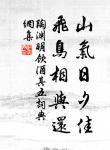 山氣日夕佳
飛鳥相與還
陶淵明飲酒其五詞典
網集